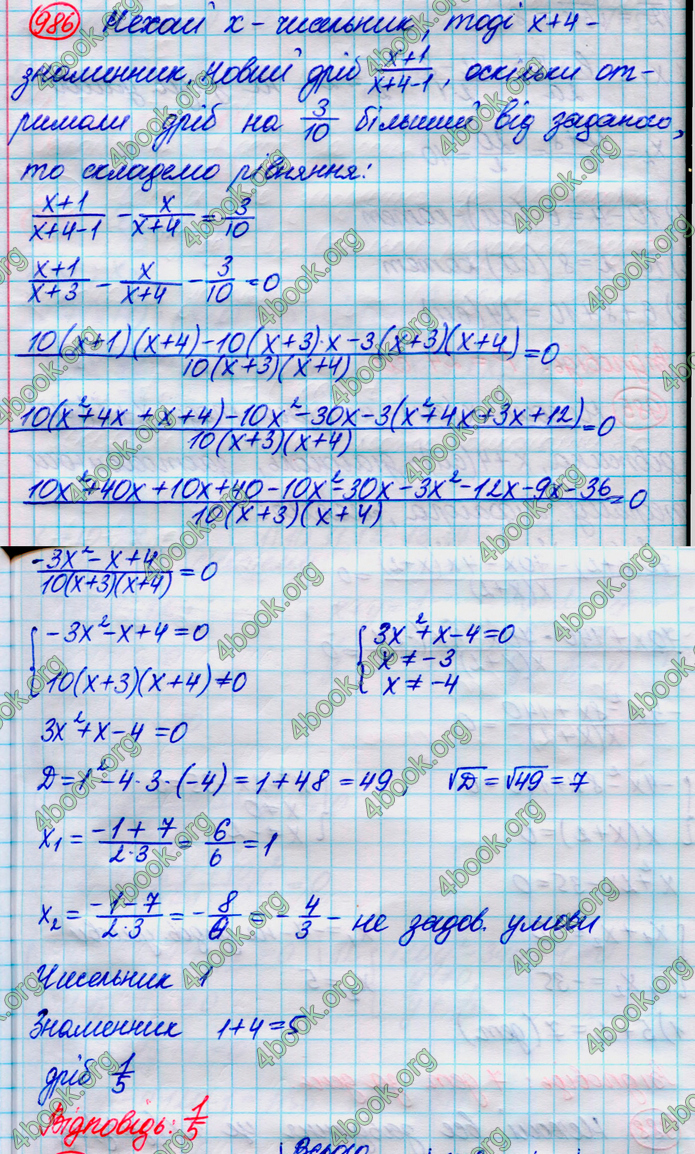 986 Нехай x - чисельник, тоді x+4 -
знаменник. Новий дріб (x+1)/(x+4-1), оскільки от-
римали дріб на 3/10 більший від заданого,
то складемо рівняння:
(x+1)/(x+4-1) - x/(x+4) = 3/10
(x+1)/(x+3) - x/(x+4) - 3/10 = 0
(10(x+1)(x+4)-10(x+3)·x-3(x+3)(x+4))/(10(x+3)(x+4)) = 0
(10(x²+4x+x+4)-10x²-30x-3(x²+4x+3x+12))/(10(x+3)(x+4)) = 0
(10x²+40x+10x+40-10x²-30x-3x²-12x-9x-36)/(10(x+3)(x+4)) = 0
(-3x²-x+4)/(10(x+3)(x+4)) = 0
{ -3x²-x+4=0
10(x+3)(x+4)≠0
{ 3x²+x-4=0
x≠-3
x≠-4
3x²+x-4=0
D=1²-4·3·(-4)=1+48=49, √D=√49=7
x₁ = (-1+7)/(2·3) = 6/6 = 1
x₂ = (-1-7)/(2·3) = -8/6 = -4/3 - не задов. умови
Чисельник 1
Знаменник 1+4=5
дріб 1/5
Відповідь: 1/5
4book.org